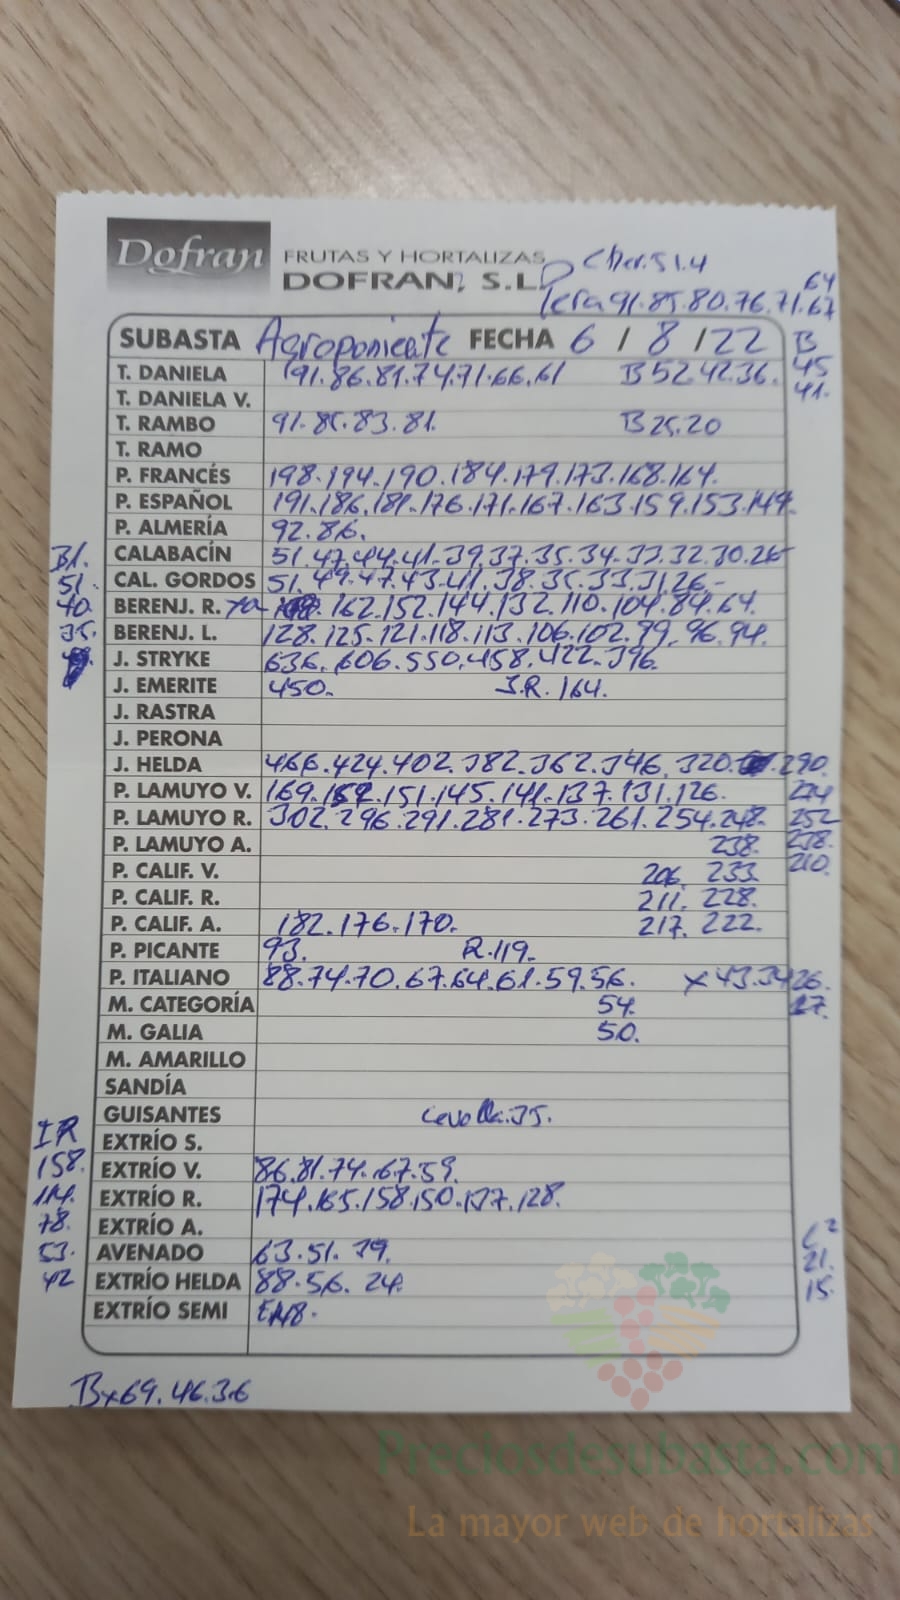 Dofran
FRUTAS Y HORTALIZAS
DOFRAN, S.L.
Cher. 51.4
Pera 91.85.80.76.71.67
64
SUBASTA Agroponiente FECHA 6 / 8 / 22 B
T. DANIELA 91.86.81.74.71.66.61 B 52.42.36. 45
41.
T. DANIELA V.
T. RAMBO 91.85.83.81. B 25.20
T. RAMO
P. FRANCÉS 198.194.190.184.179.173.168.164.
P. ESPAÑOL 191.186.181.176.171.167.163.159.153.149.
P. ALMERÍA 92.86.
Bl. CALABACÍN 51.47.44.41.39.37.35.34.33.32.30.26
51. CAL. GORDOS 51.49.47.43.41.38.35.33.31.26.-
40. BERENJ. R. 162.152.144.132.110.104.84.64.
35. BERENJ. L. 128.125.121.118.113.106.102.99.96.94.
J. STRYKE 636.606.550.458.422.396.
J. EMERITE 450. S.R. 164.
J. RASTRA
J. PERONA
J. HELDA 466.424.402.382.362.346.320. 290.
P. LAMUYO V. 169.152.151.145.141.137.131.126. 274
P. LAMUYO R. 302.296.291.281.273.261.254.248. 252
P. LAMUYO A. 238. 238.
P. CALIF. V. 206. 233. 210.
P. CALIF. R. 211. 228.
P. CALIF. A. 182.176.170. 217. 222.
P. PICANTE 93. R.119.
P. ITALIANO 88.74.70.67.64.61.59.56. x 43.34.26.
M. CATEGORÍA 54. 17.
M. GALIA 50.
M. AMARILLO
SANDÍA
GUISANTES Cevolla.35.
IR EXTRÍO S.
158. EXTRÍO V. 86.81.74.67.59.
114. EXTRÍO R. 174.165.158.150.137.128.
78. EXTRÍO A.
53. AVENADO 63.51.39. C2
42 EXTRÍO HELDA 88.56.24. 21.
EXTRÍO SEMI 15.
Bx69.46.36
Preciosdesubasta.com
La mayor web de hortalizas